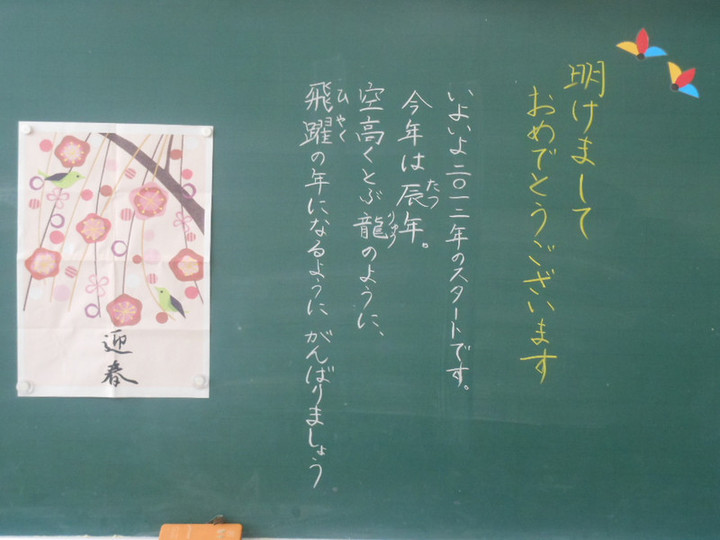 明けまして
おめでとうございます
いよいよ二〇一二年のスタートです。
今年は辰年。
たつ
空高くとぶ龍のように、
りゅう
飛躍の年になるように がんばりましょう
ひやく
迎春